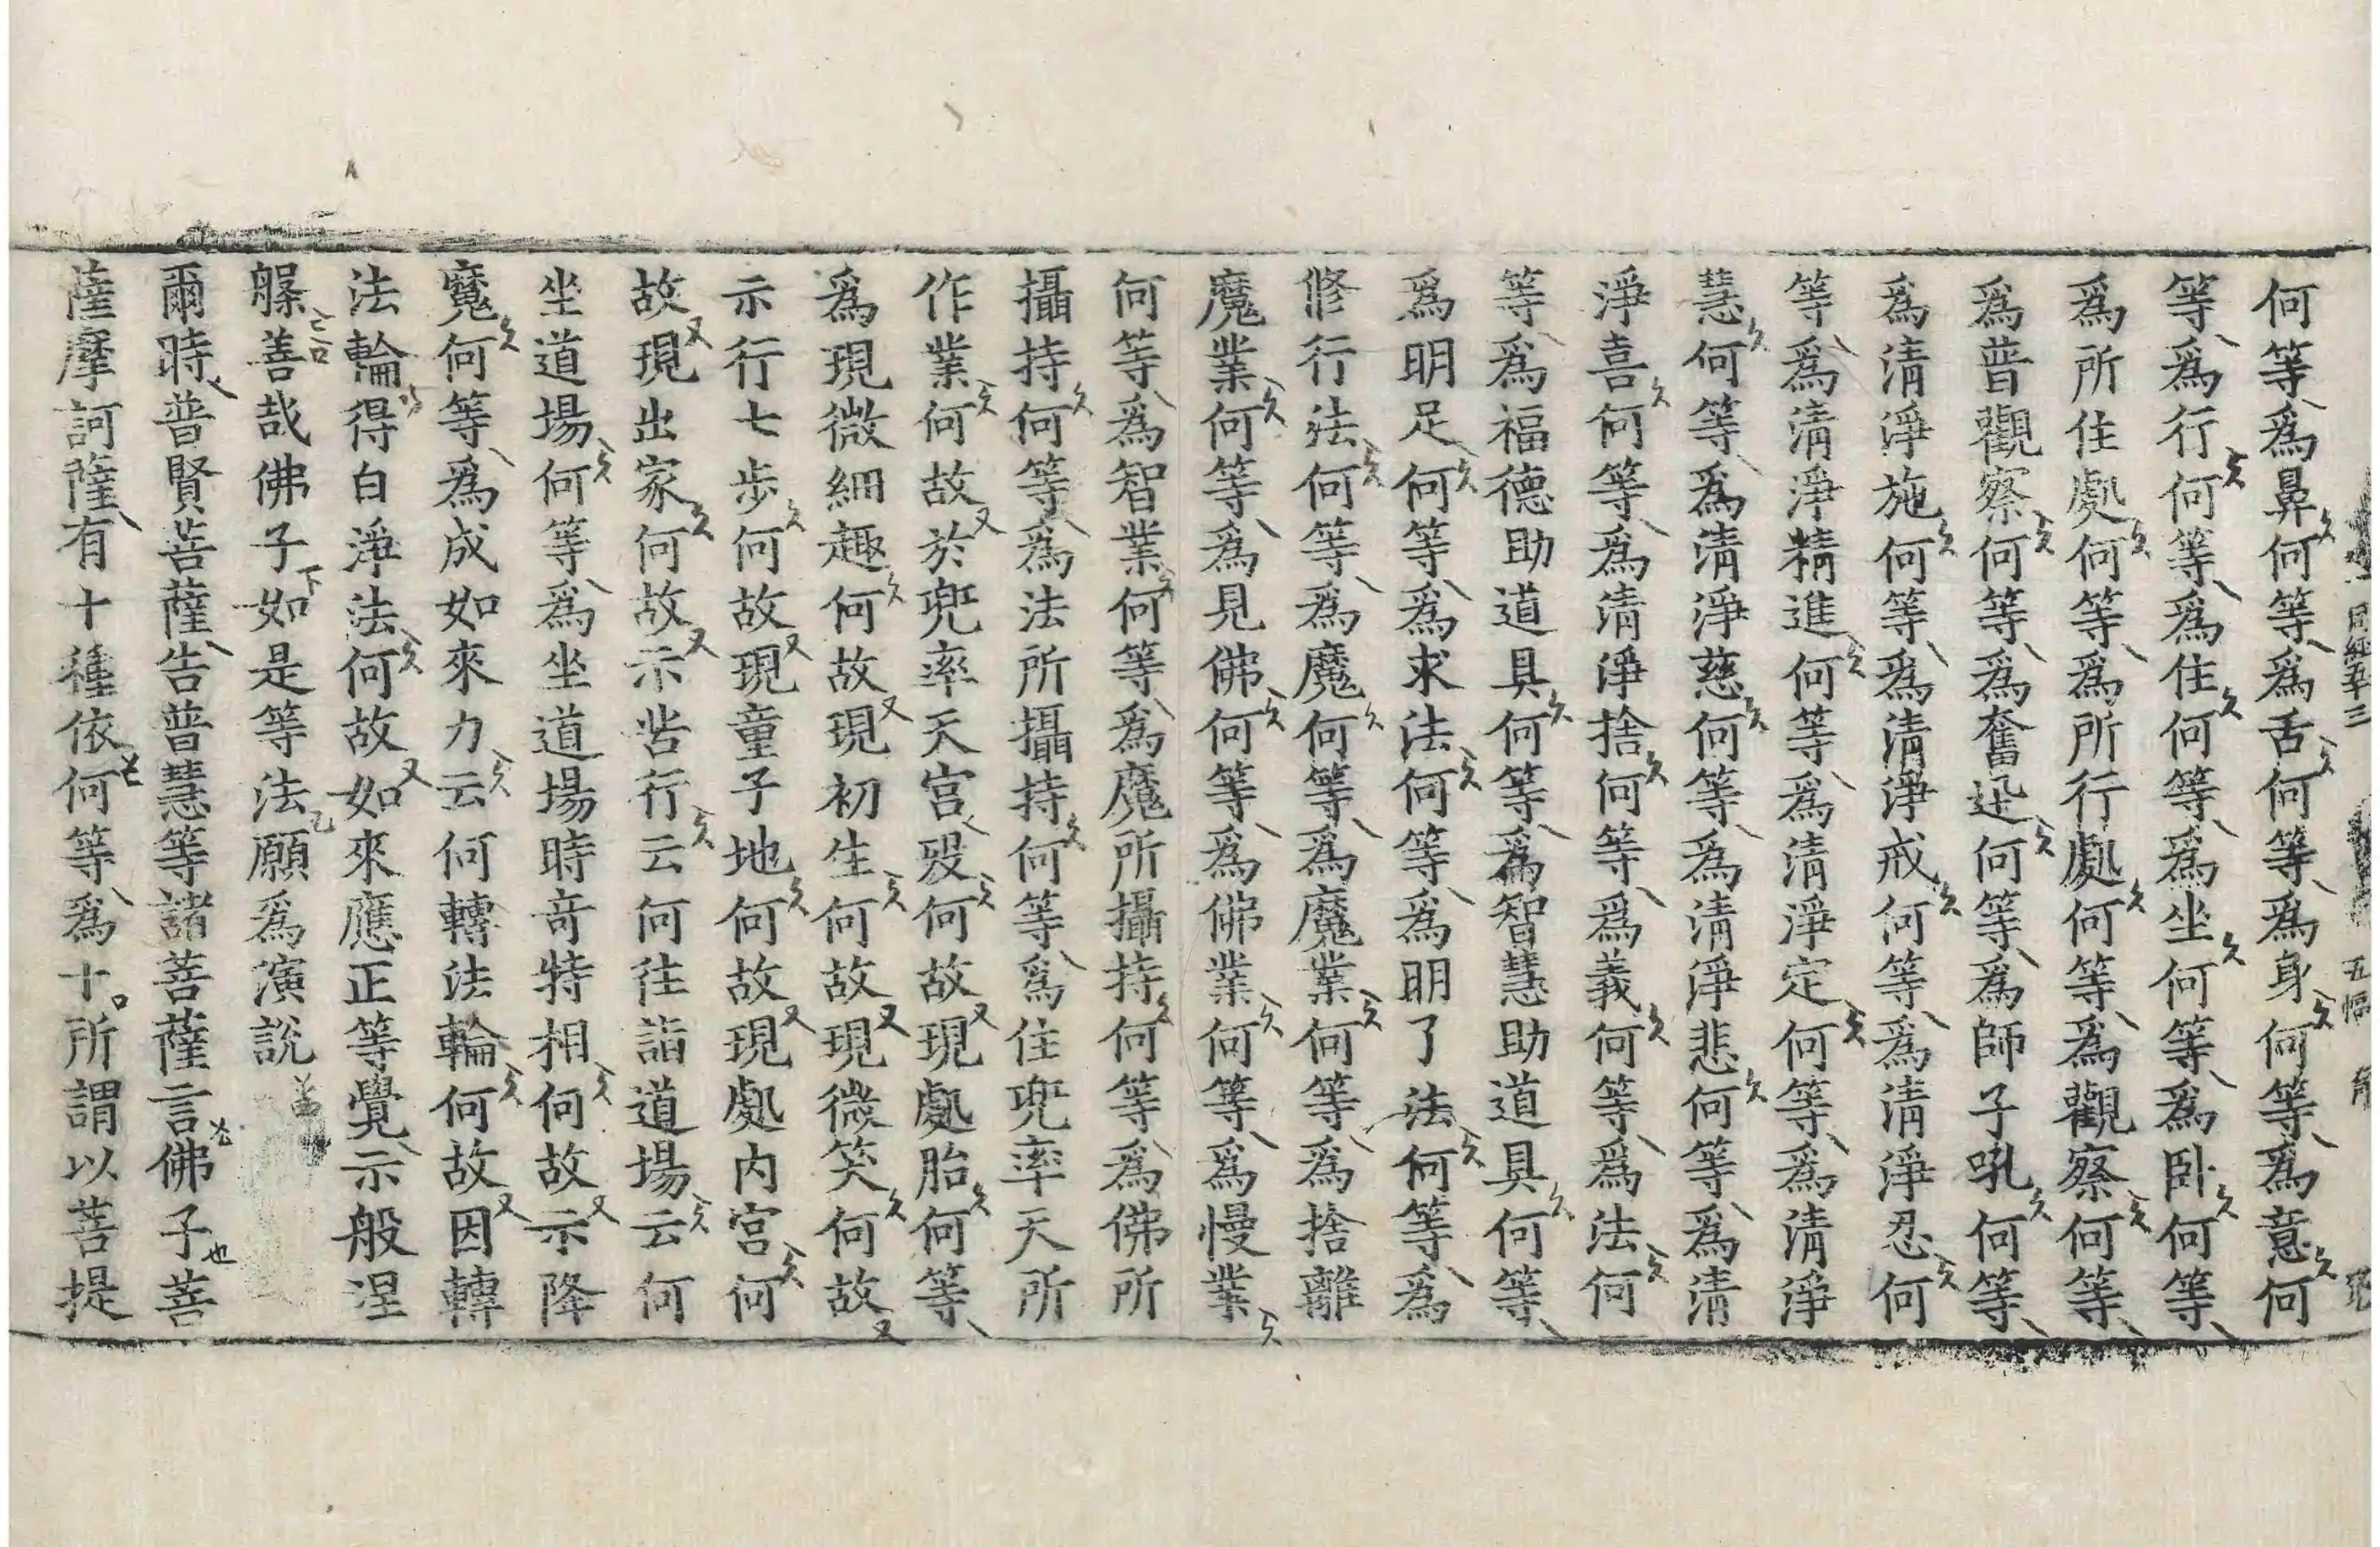 何等爲鼻何等爲舌何等爲身何等爲意何
等爲行何等爲住何等爲坐何等爲卧何等
爲所住處何等爲所行處何等爲觀察何等
爲普觀察何等爲奮迅何等爲師子吼何等
爲清淨施何等爲清淨戒何等爲清淨忍何
等爲清淨精進何等爲清淨定何等爲清淨
慧何等爲清淨慈何等爲清淨悲何等爲清
淨喜何等爲清淨捨何等爲義何等爲法何
等爲福德助道具何等爲智慧助道具何等
爲明足何等爲求法何等爲明了法何等爲
修行法何等爲魔何等爲魔業何等爲捨離
魔業何等爲見佛何等爲佛業何等爲慢業
何等爲智業何等爲魔所攝持何等爲佛所
攝持何等爲法所攝持何等爲住兜率天所
作業何故於兜率天宮歿何故現處胎何等
爲現微細趣何故現初生何故現微笑何故
示行七步何故現童子地何故現處内宮何
故現出家何故示苦行云何往詣道場云何
坐道場何等爲坐道場時奇特相何故示降
魔何等爲成如來力云何轉法輪何故因轉
法輪得白淨法何故如來應正等覺示般涅
槃善哉佛子如是等法願爲演說
爾時普賢菩薩告普慧等諸菩薩言佛子菩
薩摩訶薩有十種依何等爲十所謂以菩提